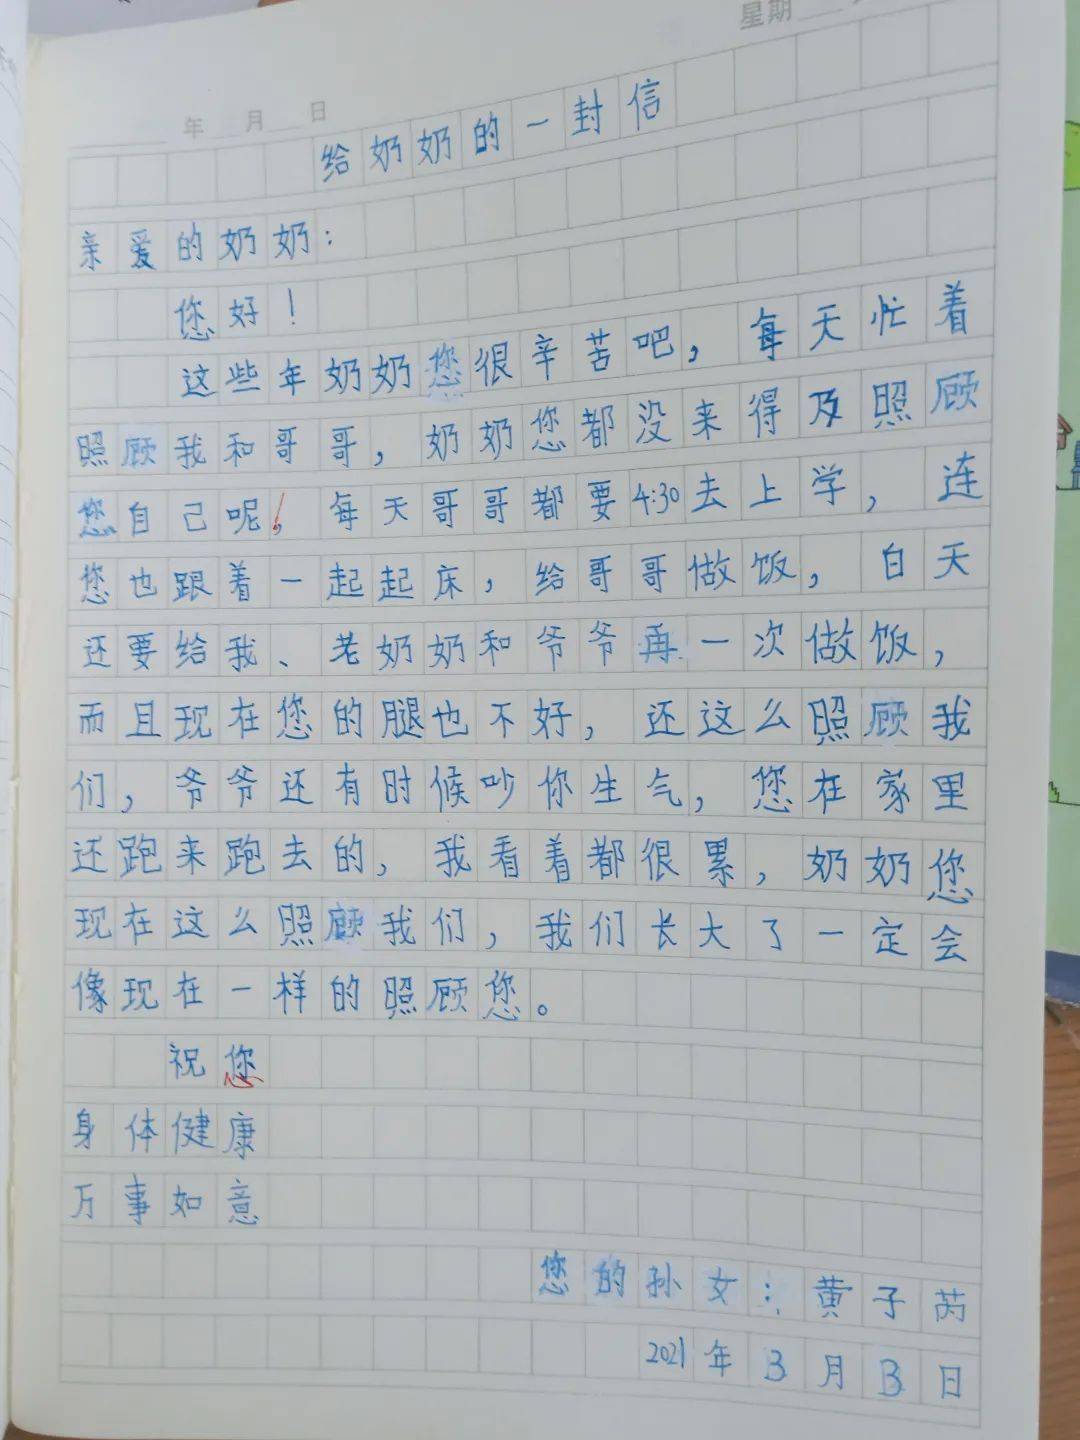 星期
年 月 日
给奶奶的一封信
亲爱的奶奶：
您好！
这些年奶奶您很辛苦吧，每天忙着
照顾我和哥哥，奶奶您都没来得及照顾
您自己呢，每天哥哥都要4:30去上学，连
您也跟着一起起床，给哥哥做饭，白天
还要给我、老奶奶和爷爷再一次做饭，
而且现在您的腿也不好，还这么照顾我
们，爷爷还有时候吵你生气，您在家里
还跑来跑去的，我看着都很累，奶奶您
现在这么照顾我们，我们长大了一定会
像现在一样的照顾您。
祝您
身体健康
万事如意
您的孙女：黄子芮
2021年3月3日